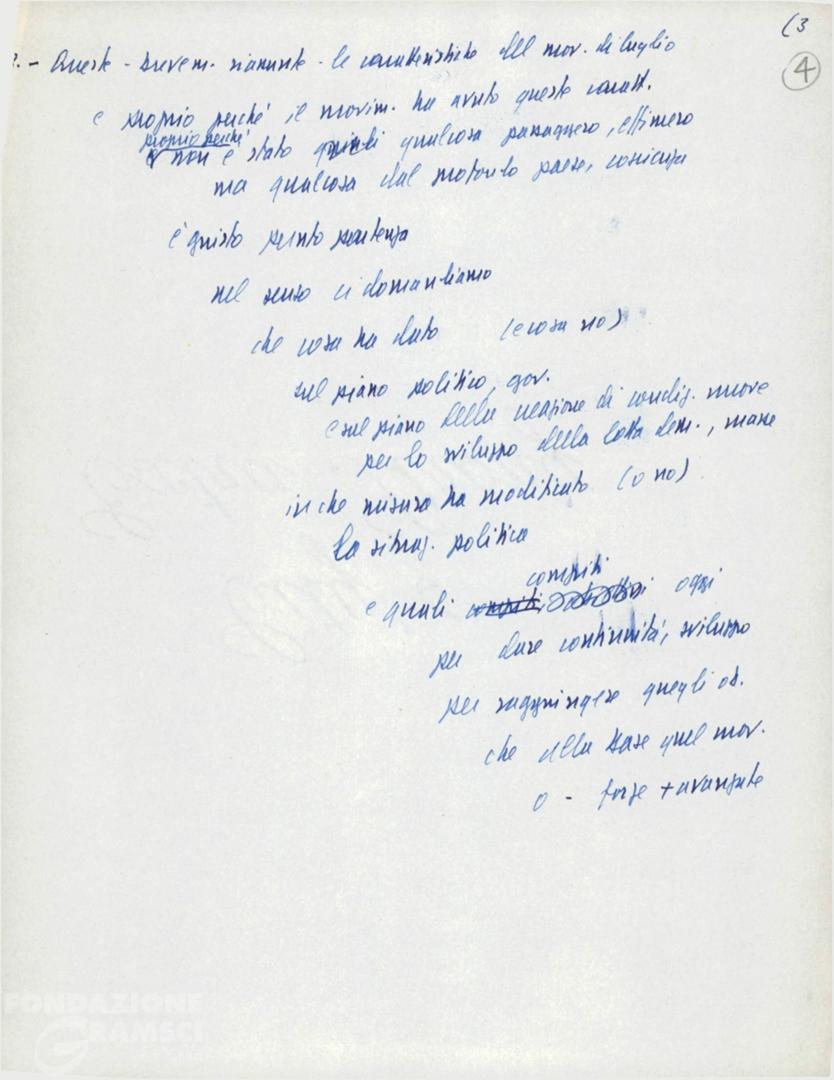 (3
4
2. - Queste - brevem. riassunte - le caratteristiche del mov. di luglio
e proprio perché il movim. ha avuto queste caratt.
proprio perché
non è stato quindi qualcosa passeggero, effimero
ma qualcosa dal profondo paese, coscienza
è giusto punto partenza
nel senso ci domandiamo
che cosa ha dato (e cosa no)
sul piano politico, gov.
e sul piano della creazione di condiz. nuove
per lo sviluppo della lotta dem., masse
in che misura ha modificato (o no)
la situaz. politica
compiti
e quali oggi
per dare continuità, sviluppo
per raggiungere quegli ob.
che alla base quel mov.
o - forze + avanzate
FONDAZIONE
GRAMSCI